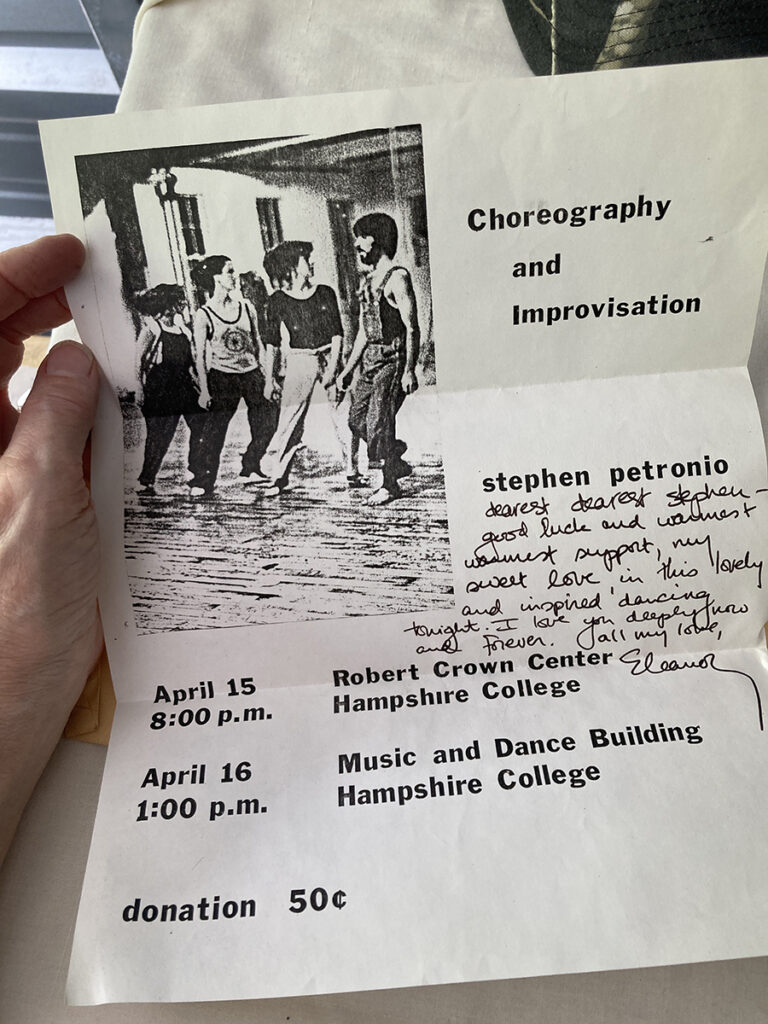 Choreography
and
Improvisation
stephen petronio
dearest dearest stephen -
good luck and warmest
warmest support, my
sweet love in this lovely
and inspired dancing
tonight. I love you deeply now
and forever. all my love,
Eleanor
April 15
8:00 p.m.
Robert Crown Center
Hampshire College
April 16
1:00 p.m.
Music and Dance Building
Hampshire College
donation 50¢